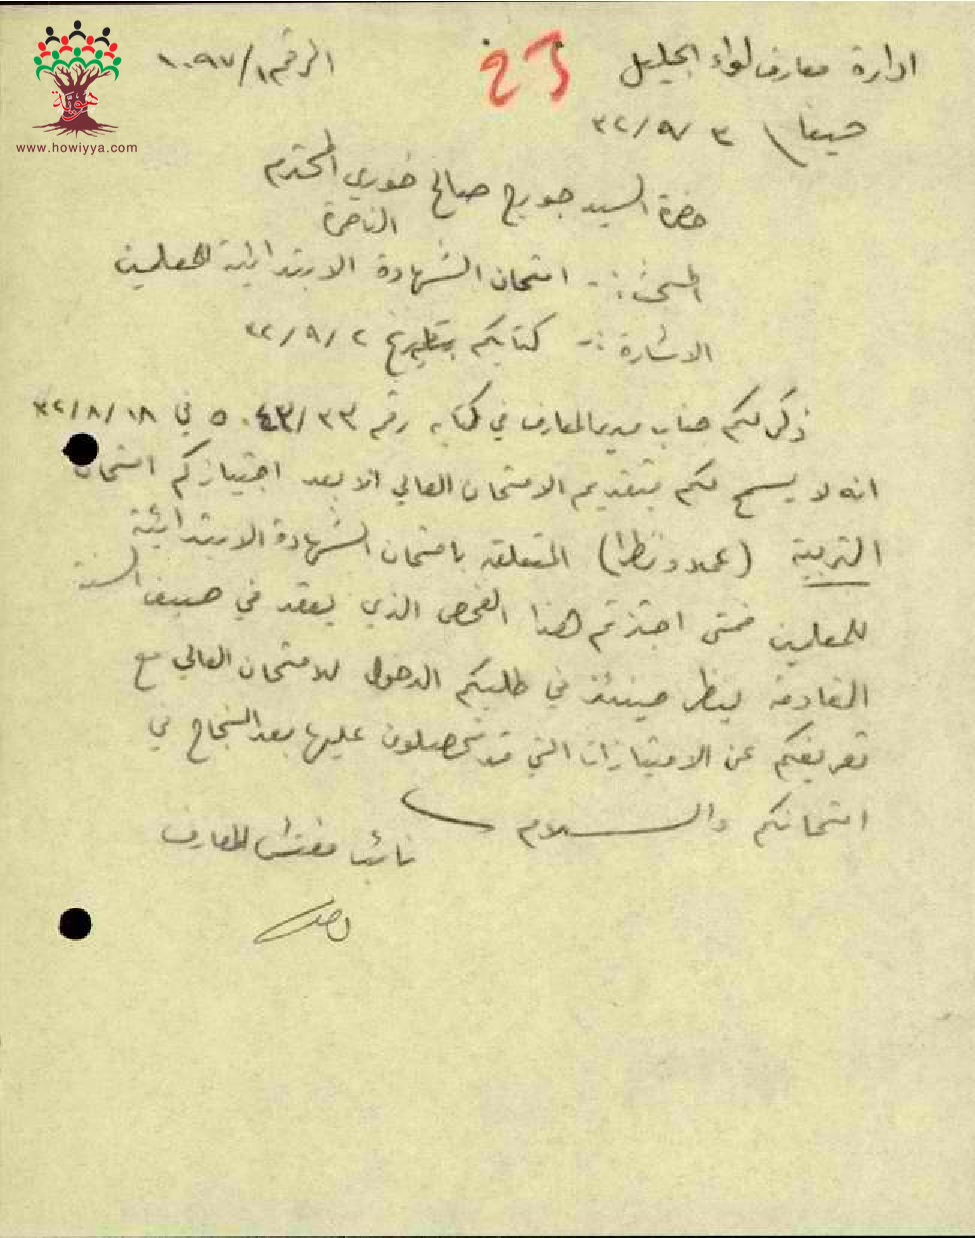 هوية
www.howiyya.com
ادارة معارف لواء الجليل
25
الرقم ١٠٩٧/١
حيفا ٣٢/٩/٣
حضرة السيد جورج صالح خوري المحترم
الناصرة
المبحث :- امتحان الشهادة الابتدائية للمعلمين
الاشارة :- كتابكم بتاريخ ٣٢/٩/٢
ذكر لكم جناب مدير المعارف في كتابه رقم في ٣٢/٨/١٨
انه لا يسمح لكم بتقديم الامتحان العالي الا بعد اجتيازكم امتحان
التربية (عملا ونظرا) المتعلقه بامتحان الشهادة الابتدائية
للمعلمين فمتى اجتزتم هذا الفحص الذي يعقد في صيف السنة
القادمة ينظر حينئذ في طلبكم الدخول للامتحان العالي مع
تعريفكم عن الامتيازات التي قد تحصلون عليها بعد النجاح في
امتحانكم والسلام
نائب مفتش المعارف